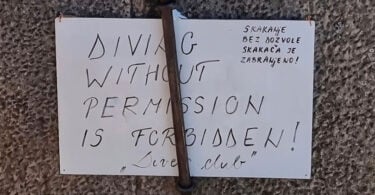 DIVING
WITHOUT
PERMISSION
IS FORBIDDEN!
„Divers club"
SKAKANJE
BEZ DOZVOLE
SKAKAČA JE
ZABRANJENO!